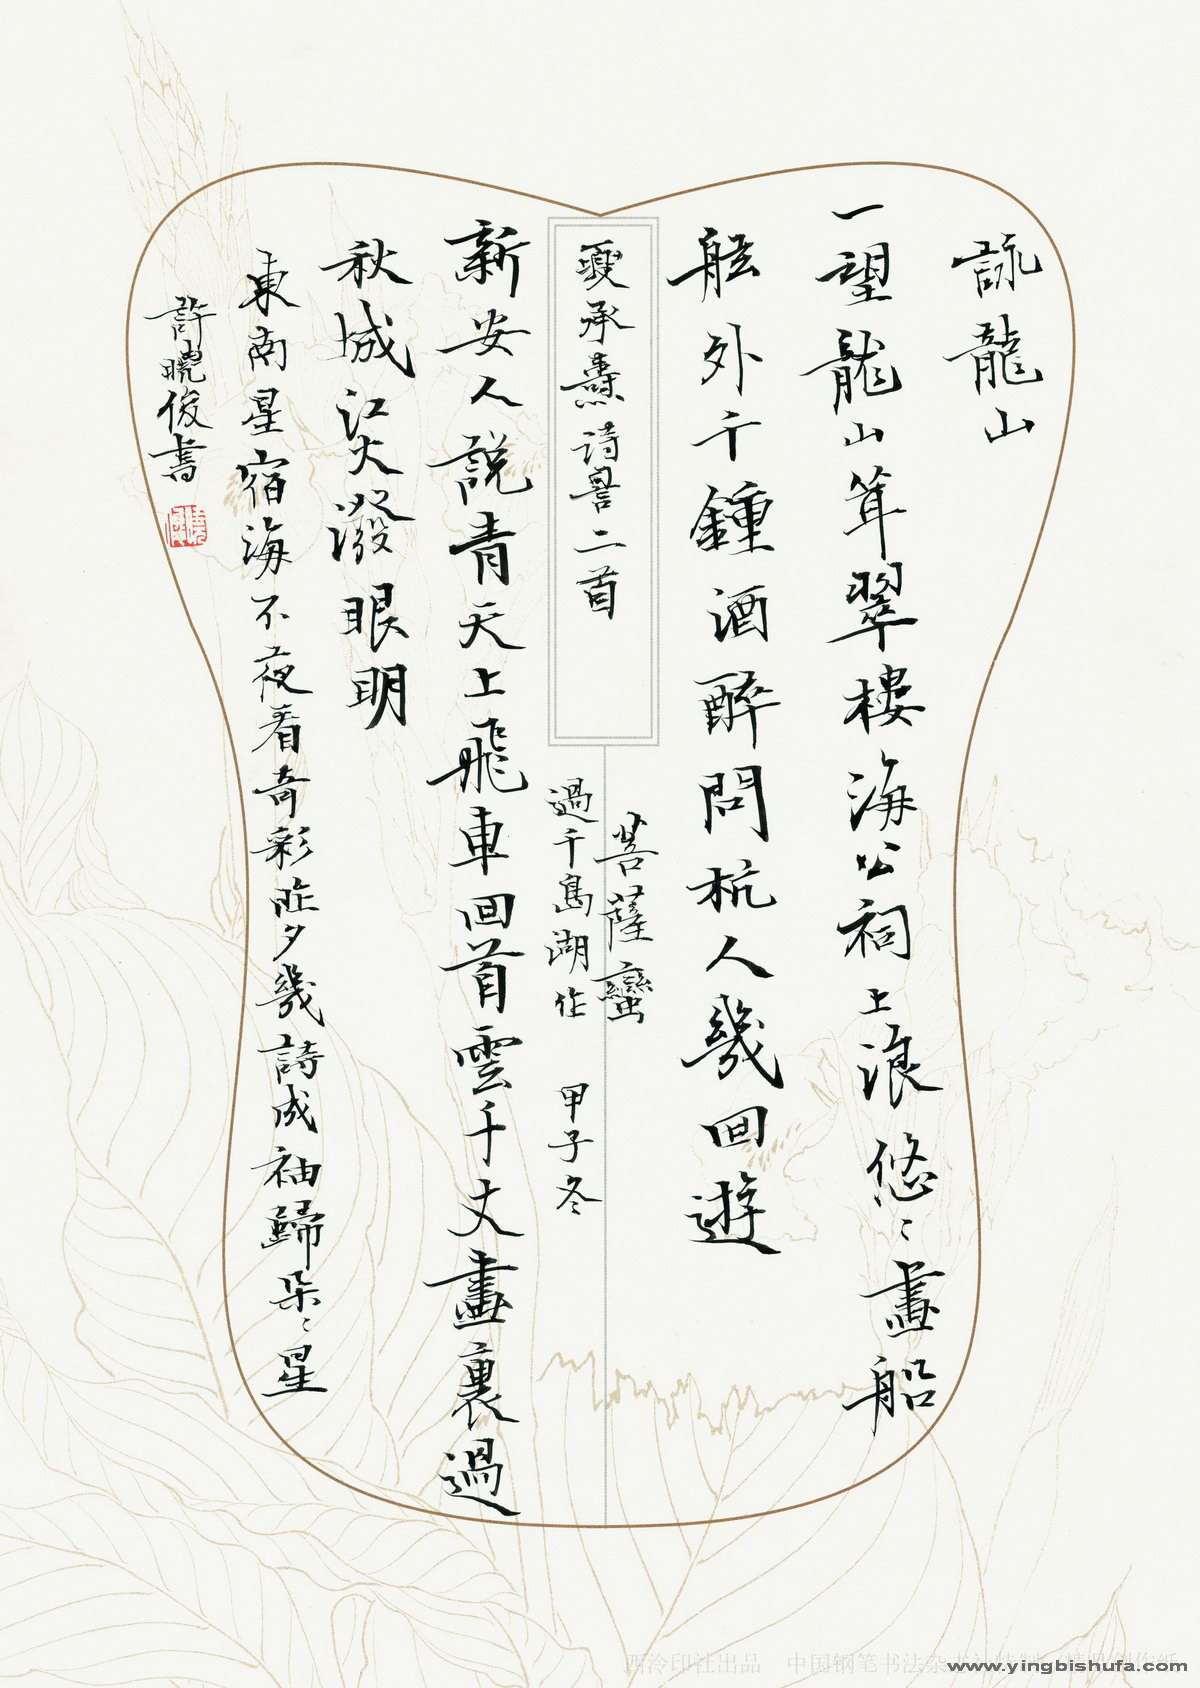 詠龍山
一望龍山聳翠樓海公祠上浪悠〻畫船
舷外千鍾酒醉問杭人幾回遊
夏承燾詩二首
菩薩蠻
過千島湖作 甲子冬
新安人說青天上飛車回首雲千丈畫裏過
秋城江火潑眼明
東南星宿海不夜看奇彩昨夕幾詩成袖歸朶〻星
許曉俊書
西泠印社出品 中国钢笔书法杂志社
www.yingbishufa.com